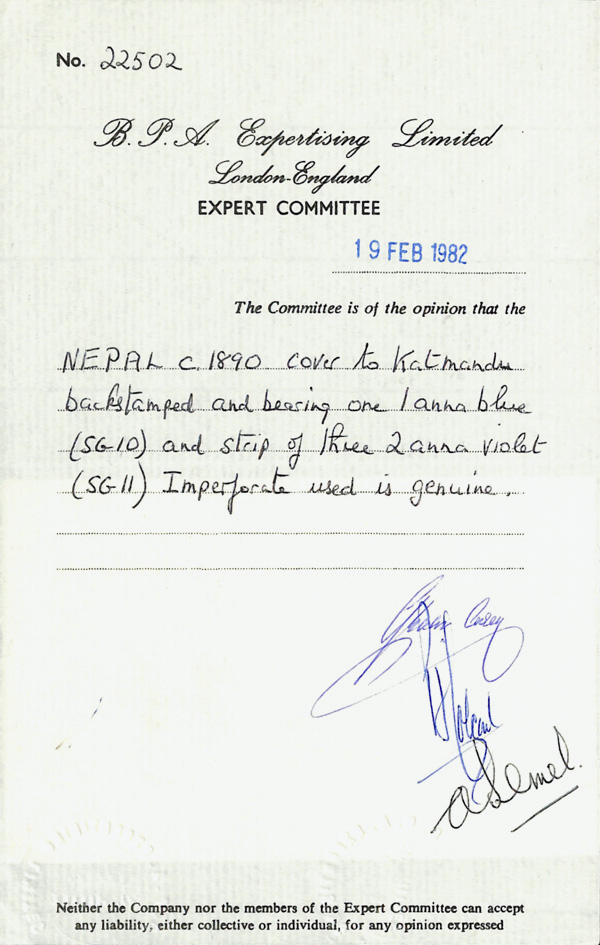 No. 22502
B. P. A. Expertising Limited
London-England
EXPERT COMMITTEE
19 FEB 1982
The Committee is of the opinion that the
NEPAL c.1890 cover to Katmandu
backstamped and bearing one 1 anna blue
(SG10) and strip of three 2 anna violet
(SG11) Imperforate used is genuine.
Neither the Company nor the members of the Expert Committee can accept
any liability, either collective or individual, for any opinion expressed